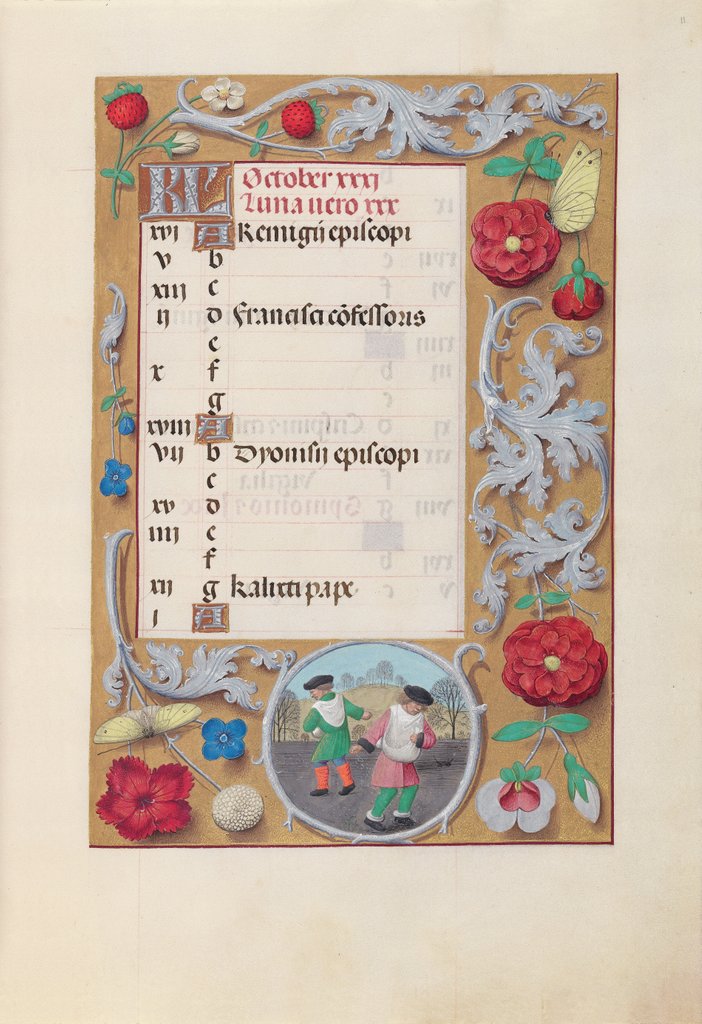 KL October xxxj
Luna uero xxx
xvj A Remigij episcopi
v b
xiij c
ij d Francisci cōfessoris
e
x f
g
xviij A
vij b Dyonisij episcopi
c
xv d
iiij e
f
xij g Kalixti pape
j A